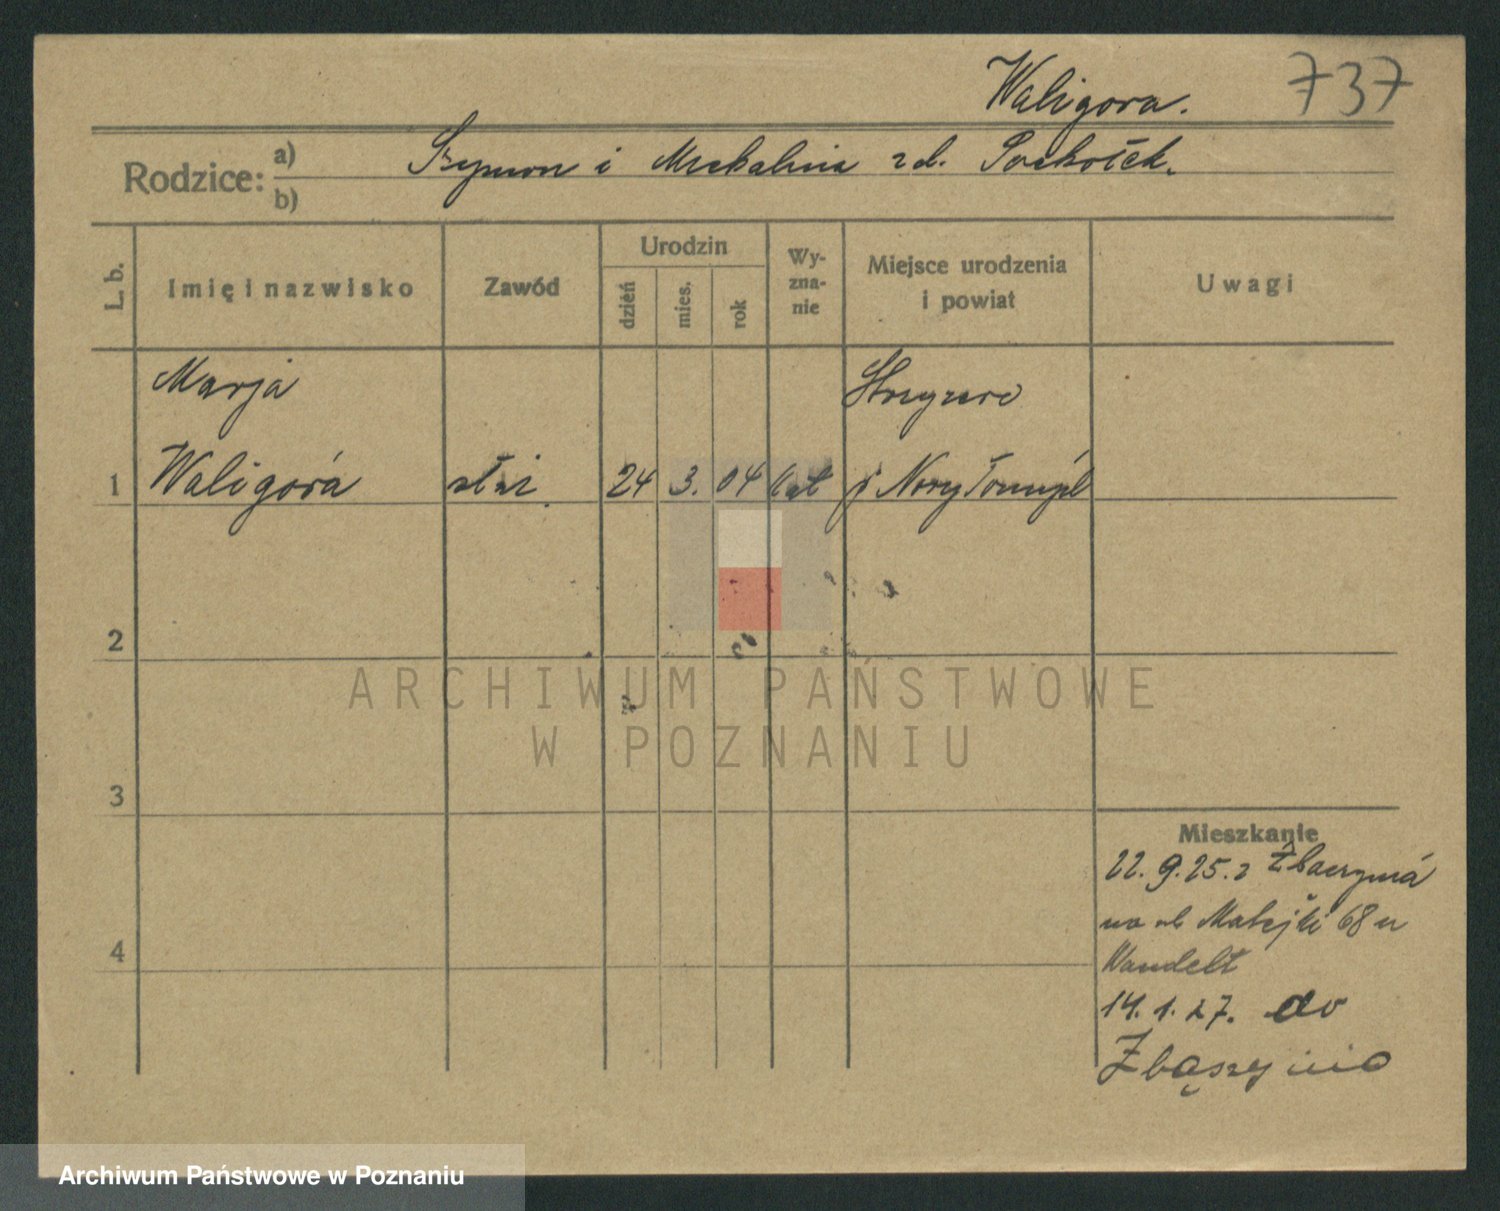 Waligora. 737
Rodzice: a) Szymon i Michalina zd. Pachołek.
b)
L. b.
Imię i nazwisko
Zawód
Urodzin
dzień
mies.
rok
Wy-
zna-
nie
Miejsce urodzenia
i powiat
Uwagi
Marja
1 Waligóra służ. 24 3. 04 kat p. Nowy Tomyśl
2
3
4
Mieszkanie
22. 9. 25. z
na ul Matejki 68 u
Wandelt
14. 1. 27. do
Zbąszynia
ARCHIWUM PAŃSTWOWE
W POZNANIU
Archiwum Państwowe w Poznaniu